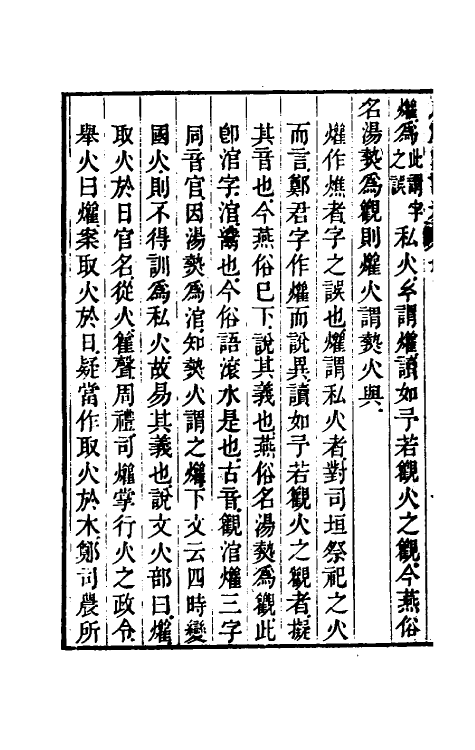 爟爲此謂字之誤私火今謂爟讀如予若觀火之觀今燕俗
名湯熱爲觀則爟火謂熱火與
爟作燋者字之誤也爟謂私火者對司烜祭祀之火
而言鄭君字作爟而說異讀如予若觀火之觀者擬
其音也今燕俗已下說其義也燕俗名湯熱爲觀此
卽涫字涫鬻也今俗語滾水是也古音觀涫爟三字
同音官因湯熱爲涫知熱火謂之爟下文云四時變
國火則不得訓爲私火故易其義也說文火部曰爟
取火於日官名從火雚聲周禮司爟掌行火之政令
舉火曰爟案取火於日疑當作取火於木鄭司農所